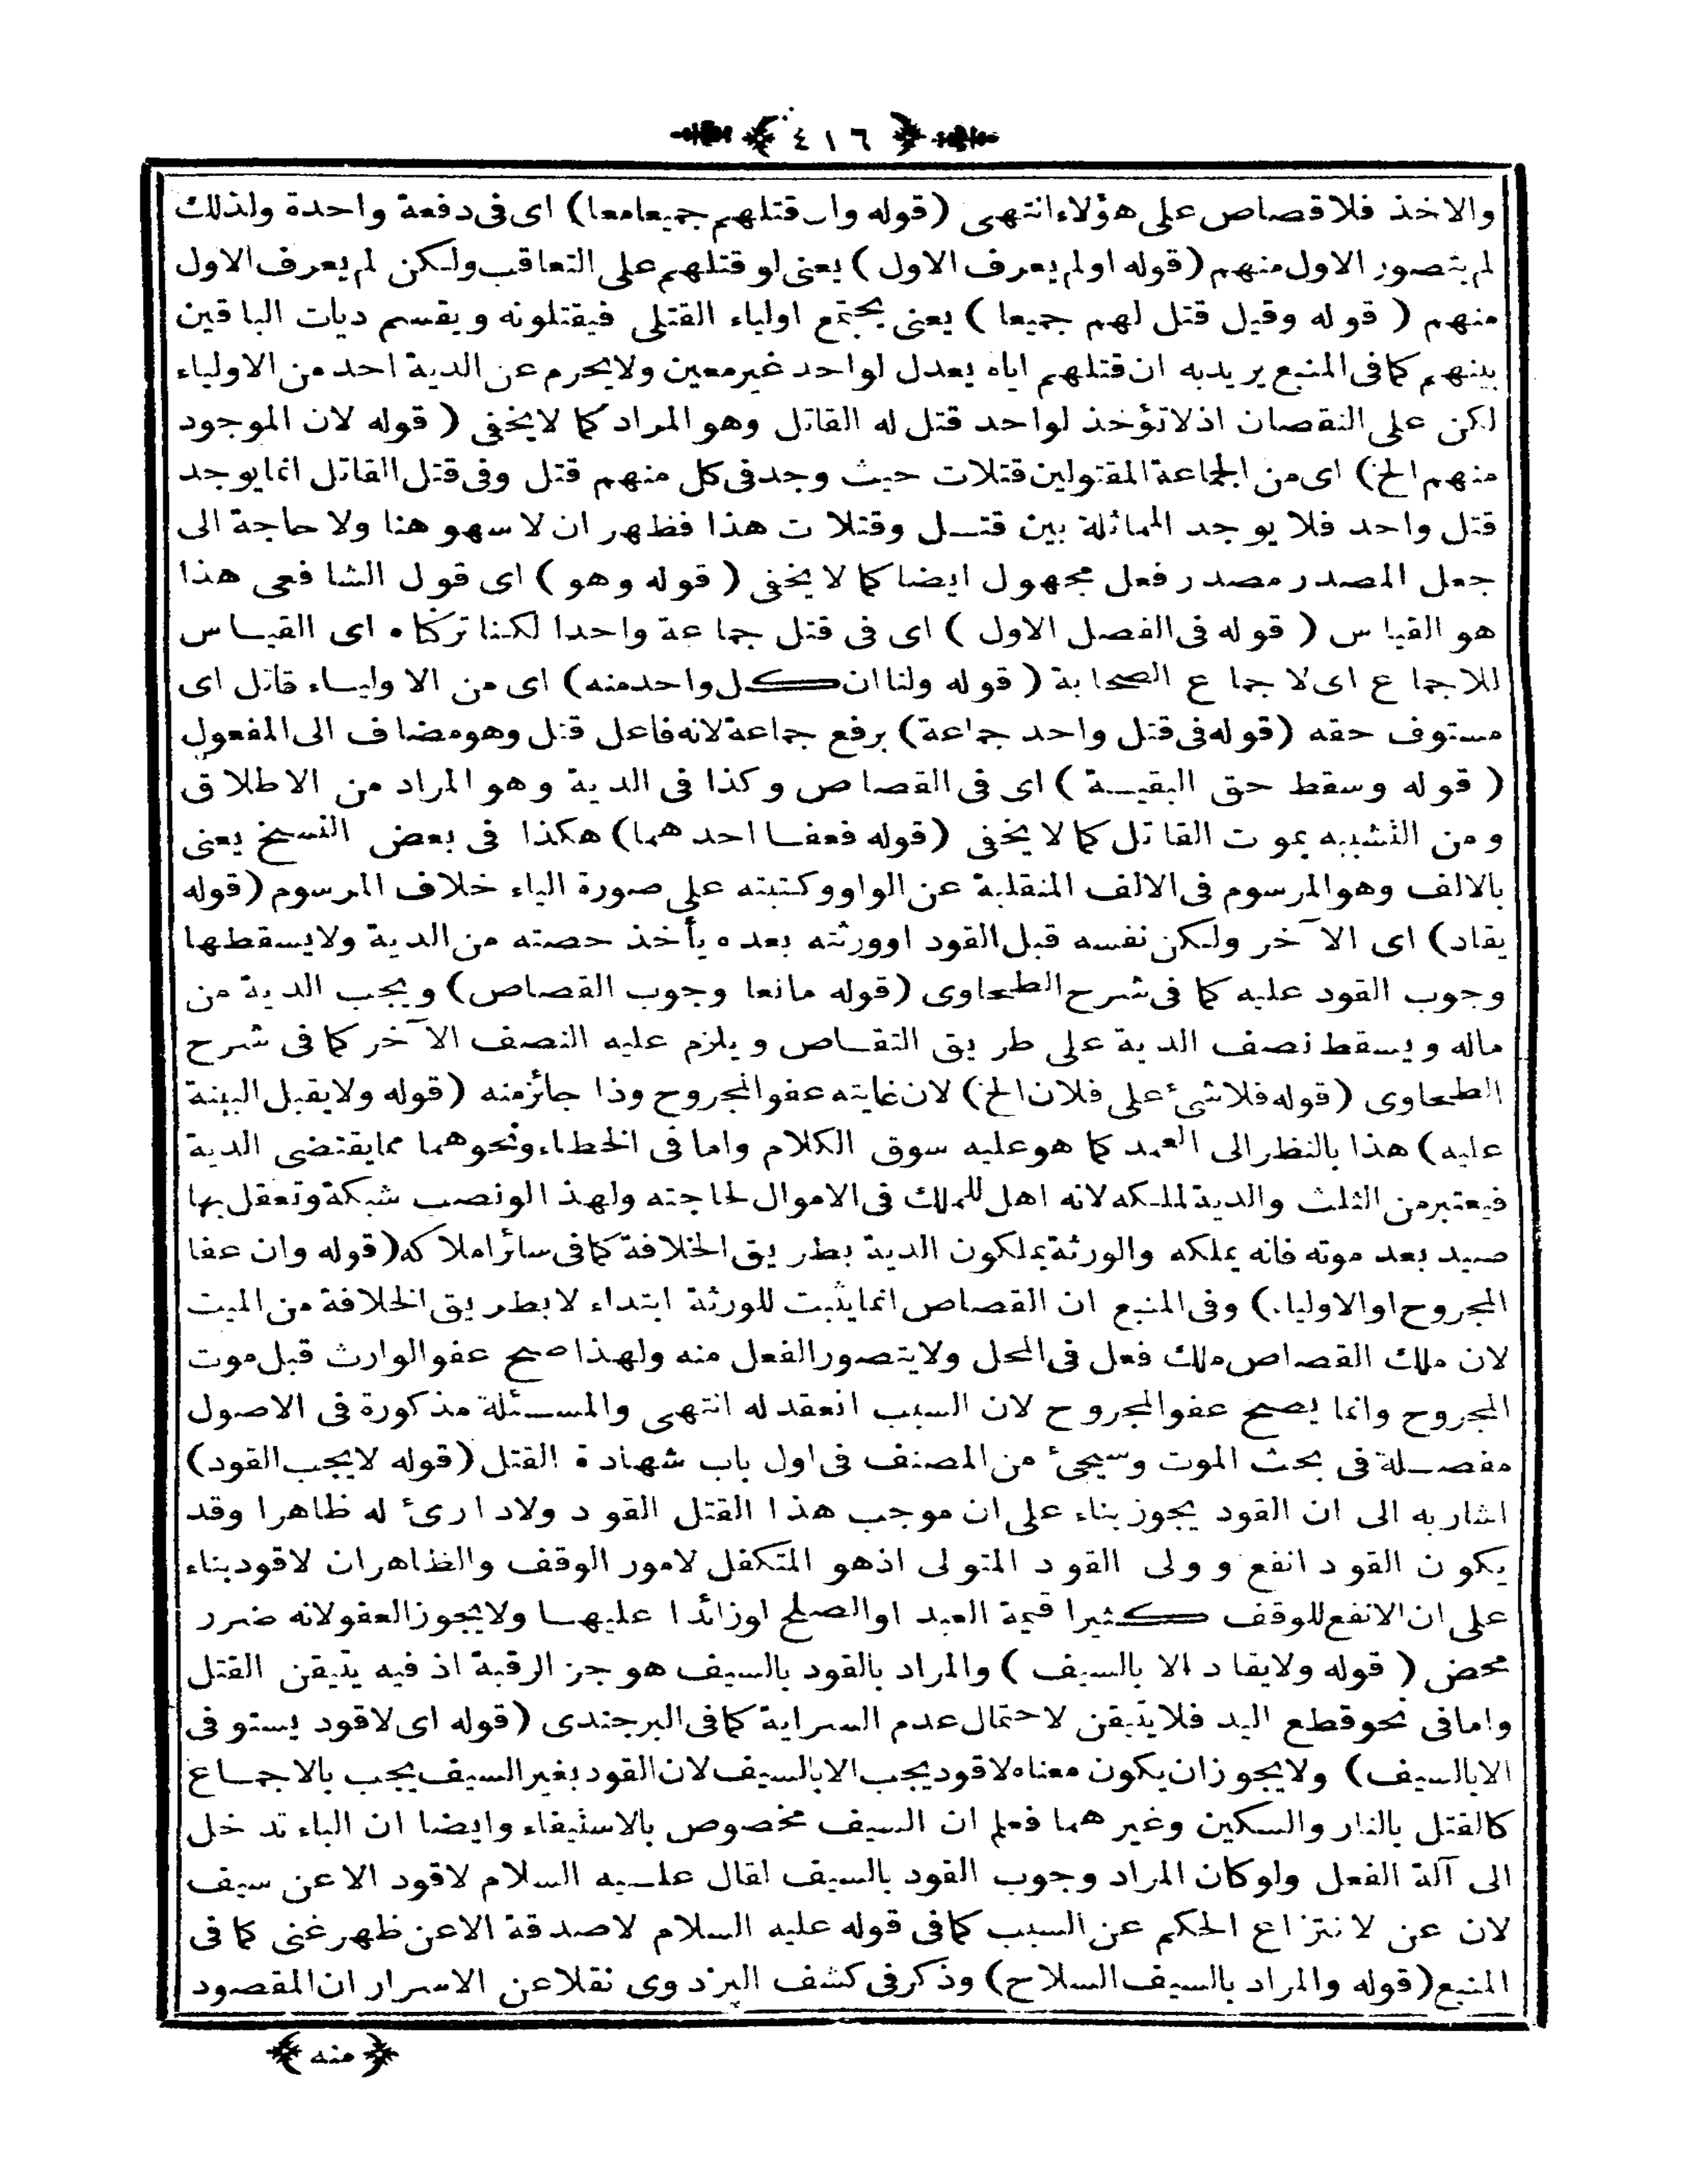 ﴿ ٤١٦ ﴾
والاخذ فلا قصاص على هؤلاء انتهى (قوله وان قتلهم جميعا معا) اى فى دفعة واحدة ولذلك
لم يتصور الاول منهم (قوله اولم يعرف الاول) يعنى لو قتلهم على التعاقب ولكن لم يعرف الاول
منهم ( قوله وقيل قتل لهم جميعا ) يعنى يجتمع اولياء القتلى فيقتلونه ويقسم ديات الباقين
بينهم كما فى المنبع يريد به ان قتلهم اياه يعدل لواحد غير معين ولا يحرم عن الدية احد من الاولياء
لكن على النقصان اذ لا تؤخذ لواحد قتل له القاتل وهو المراد كما لا يخفى ( قوله لان الموجود
منهم الخ) اى من الجماعة المقتولين قتلات حيث وجد فى كل منهم قتل وفى قتل القاتل انما يوجد
قتل واحد فلا يوجد المماثلة بين قتل وقتلات هذا فظهر ان لا سهو هنا ولا حاجة الى
جعل المصدر مصدر فعل مجهول ايضا كما لا يخفى ( قوله وهو ) اى قول الشافعى هذا
هو القياس ( قوله فى الفصل الاول ) اى فى قتل جماعة واحدا لكنا تركناه اى القياس
للاجماع اى لاجماع الصحابة ( قوله ولنا ان كل واحد منه) اى من الاولياء قاتل اى
مستوف حقه (قوله فى قتل واحد جماعة) برفع جماعة لانه فاعل قتل وهو مضاف الى المفعول
( قوله وسقط حق البقية ) اى فى القصاص وكذا فى الدية وهو المراد من الاطلاق
ومن التشبيه بموت القاتل كما لا يخفى (قوله فعفا احدهما) هكذا فى بعض النسخ يعنى
بالالف وهو المرسوم فى الالف المنقلبة عن الواو وكتبته على صورة الياء خلاف المرسوم (قوله
يقاد) اى الآخر ولكن نفسه قبل القود اوورثته بعده يأخذ حصته من الدية ولا يسقطها
وجوب القود عليه كما فى شرح الطحاوى (قوله مانعا وجوب القصاص) ويجب الدية من
ماله ويسقط نصف الدية على طريق التقاص ويلزم عليه النصف الآخر كما فى شرح
الطحاوى (قوله فلا شئ على فلان الخ) لان غايته عفو المجروح وذا جائز منه (قوله ولا يقبل البينة
عليه) هذا بالنظر الى العمد كما هو عليه سوق الكلام واما فى الخطاء ونحوهما مما يقتضى الدية
فيعتبر من الثلث والدية لملكه لانه اهل للملك فى الاموال لحاجته ولهذا لو نصب شبكة وتعقل بها
صيد بعد موته فانه يملكه والورثة يملكون الدية بطريق الخلافة كما فى سائر املاكه (قوله وان عفا
المجروح اوالاولياء) وفى المنبع ان القصاص انما يثبت للورثة ابتداء لا بطريق الخلافة من الميت
لان ملك القصاص ملك فعل فى المحل ولا يتصور الفعل منه ولهذا صح عفو الوارث قبل موت
المجروح وانما يصح عفو المجروح لان السبب انعقد له انتهى والمسئلة مذكورة فى الاصول
مفصلة فى بحث الموت وسيجئ من المصنف فى اول باب شهادة القتل (قوله لا يجب القود)
اشار به الى ان القود يجوز بناء على ان موجب هذا القتل القود ولا دارئ له ظاهرا وقد
يكون القود انفع وولى القود المتولى اذ هو المتكفل لامور الوقف والظاهر ان لا قود بناء
على ان الانفع للوقف كثيرا قيمة العبد اوالصلح اوزائدا عليها ولا يجوز العفو لانه ضرر
محض ( قوله ولا يقاد الا بالسيف ) والمراد بالقود بالسيف هو جز الرقبة اذ فيه يتيقن القتل
واما فى نحو قطع اليد فلا يتيقن لاحتمال عدم السراية كما فى البرجندى (قوله اى لا قود يستوفى
الا بالسيف) ولا يجوز ان يكون معناه لا قود يجب الا بالسيف لان القود بغير السيف يجب بالاجماع
كالقتل بالنار والسكين وغيرهما فعلم ان السيف مخصوص بالاستيفاء وايضا ان الباء تدخل
الى آلة الفعل ولو كان المراد وجوب القود بالسيف لقال عليه السلام لا قود الا عن سيف
لان عن لا نتزاع الحكم عن السبب كما فى قوله عليه السلام لا صدقة الا عن ظهر غنى كما فى
المنبع (قوله والمراد بالسيف السلاح) وذكر فى كشف البزدوى نقلا عن الاسرار ان المقصود
﴿ منه ﴾